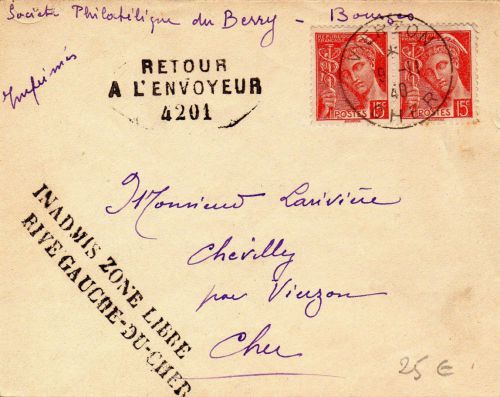 Société Philatélique du Berry - Bourges
Imprimés
RETOUR
A L'ENVOYEUR
4201
REPUBLIQUE FRANÇAISE
15c
POSTES
15c
POSTES
VIERZON
11
40
CHER
INADMIS ZONE LIBRE
RIVE GAUCHE-DU-CHER
Monsieur Larivière
Chevilly
par Vierzon
Cher
25 €